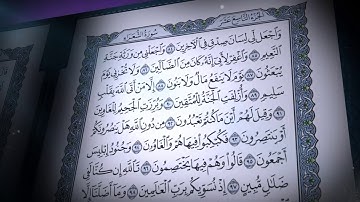 الجزء التاسع عشر
سورة الشعراء
وَٱجْعَل لِّى لِسَانَ صِدْقٍ فِى ٱلْءَاخِرِينَ ٨٤ وَٱجْعَلْنِى مِن وَرَثَةِ جَنَّةِ
ٱلنَّعِيمِ ٨٥ وَٱغْفِرْ لِأَبِىٓ إِنَّهُۥ كَانَ مِنَ ٱلضَّآلِّينَ ٨٦ وَلَا تُخْزِنِى يَوْمَ
يُبْعَثُونَ ٨٧ يَوْمَ لَا يَنفَعُ مَالٌ وَلَا بَنُونَ ٨٨ إِلَّا مَنْ أَتَى ٱللَّهَ بِقَلْبٍ
سَلِيمٍ ٨٩ وَأُزْلِفَتِ ٱلْجَنَّةُ لِلْمُتَّقِينَ ٩٠ وَبُرِّزَتِ ٱلْجَحِيمُ لِلْغَاوِينَ
٩١ وَقِيلَ لَهُمْ أَيْنَ مَا كُنتُمْ تَعْبُدُونَ ٩٢ مِن دُونِ ٱللَّهِ هَلْ يَنصُرُونَكُمْ
أَوْ يَنتَصِرُونَ ٩٣ فَكُبْكِبُوا۟ فِيهَا هُمْ وَٱلْغَاوُۥنَ ٩٤ وَجُنُودُ إِبْلِيسَ
أَجْمَعُونَ ٩٥ قَالُوا۟ وَهُمْ فِيهَا يَخْتَصِمُونَ ٩٦ تَٱللَّهِ إِن كُنَّا لَفِى
ضَلَٰلٍ مُّبِينٍ ٩٧ إِذْ نُسَوِّيكُم بِرَبِّ ٱلْعَٰلَمِينَ ٩٨ وَمَآ أَضَلَّنَآ إِلَّا